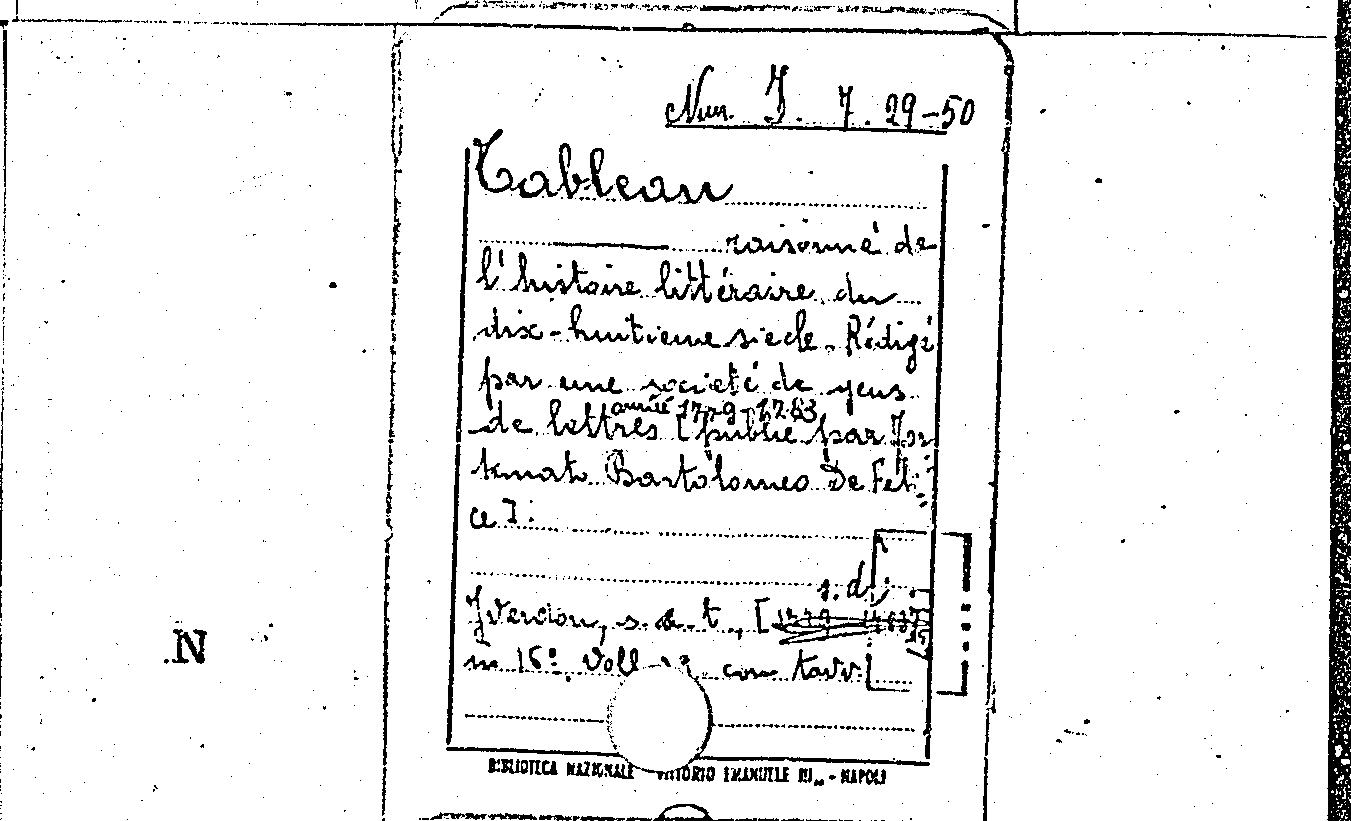 Num. J. 7. 29-50
Tableau
raisonné de
l'histoire littéraire du
dix-huitieme siecle. Rédigé
par une societé de gens
année 1779-1783
de lettres [publié par For
tunato Bartolomeo De Feli
ce].
s. d.
Yverdon, s. t., [
in 16º, Voll con tavv.
N
BIBLIOTECA NAZIONALE VITTORIO EMANUELE III„ - NAPOLI